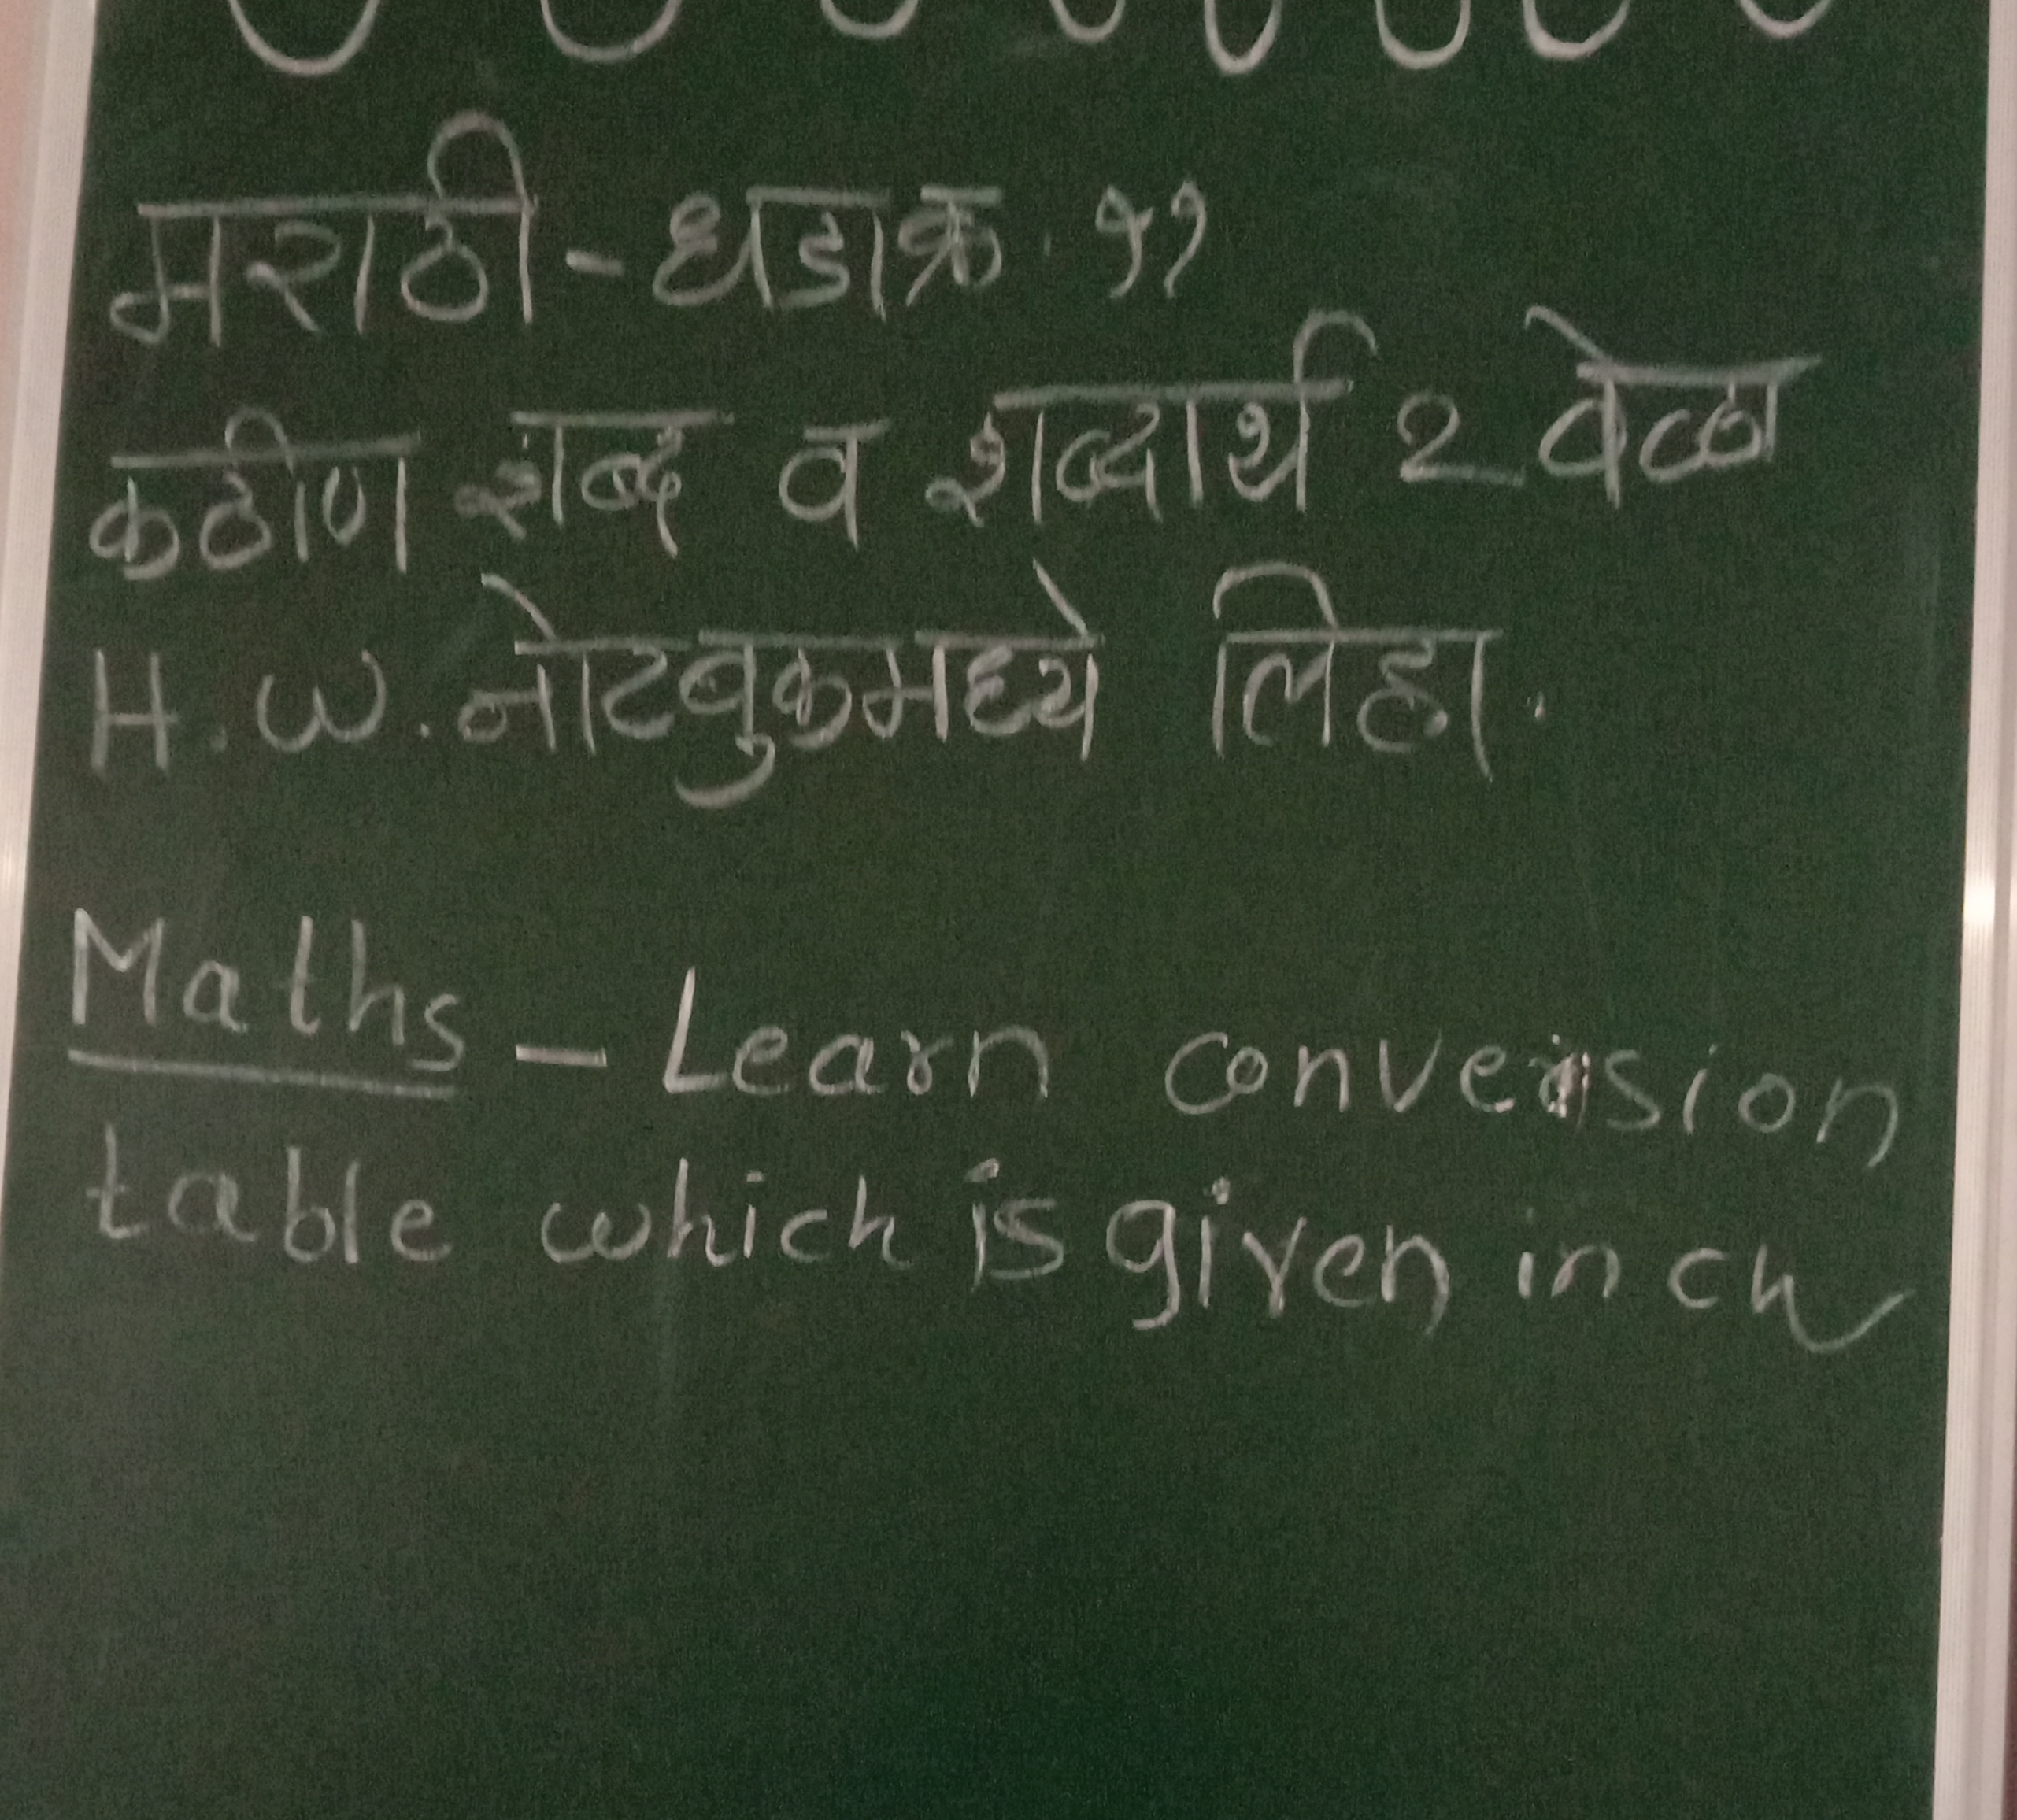 मराठी - धडा क्र. ११
कठीण शब्द व शब्दार्थ 2 वेळा
H.W. नोटबुकमध्ये लिहा.
Maths - Learn conversion
table which is given in cw